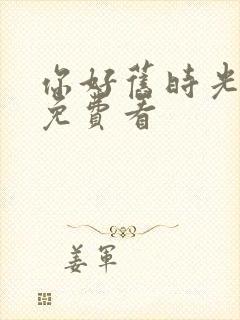 你好舊時光
免費看
姜軍